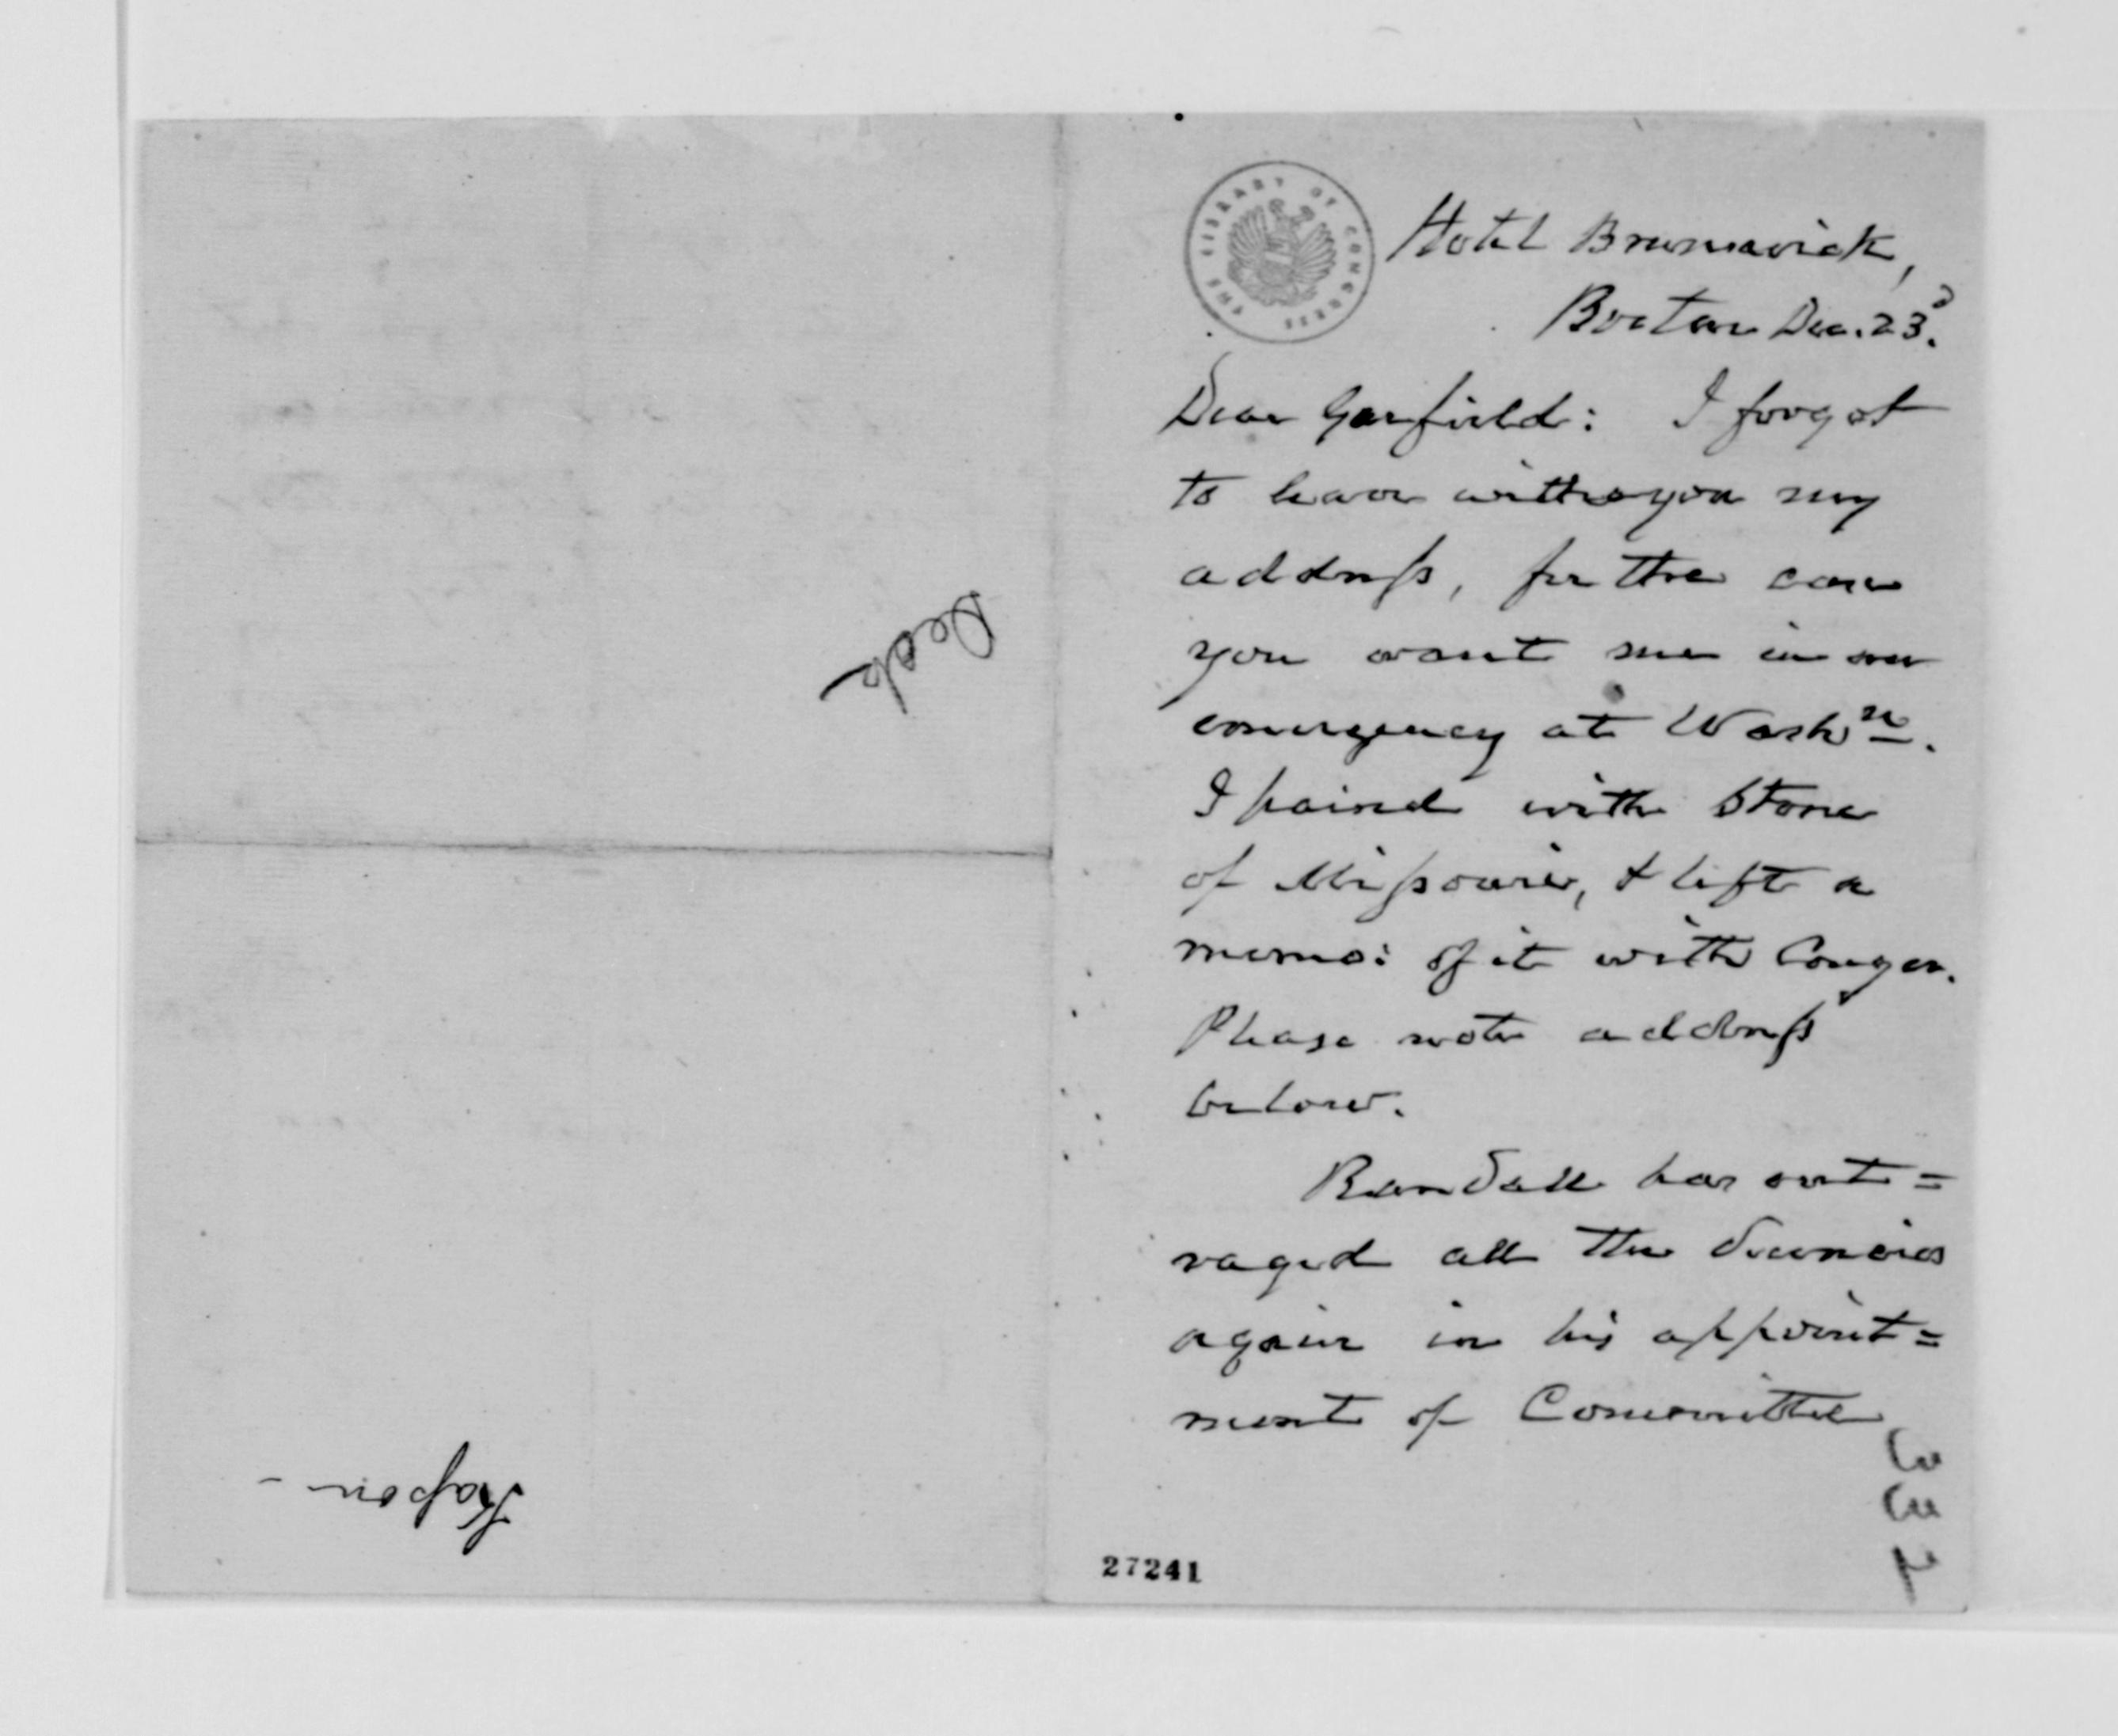 THE LIBRARY OF CONGRESS
Hotel Brunswick,
Boston Dec. 23d.
Dear Garfield: I forgot
to leave with you my
address, for the case
you want me in an
emergency at Washn.
I paired with Stone
of Missouri, & left a
memo: of it with Conger.
Please note address
below.
Randall has out=
raged all the decencies
again in his appoint=
ment of Committee
332
27241